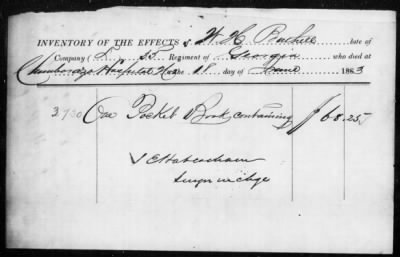 INVENTORY OF THE EFFECTS of W. H. late of
Company 35 Regiment of Georgia who died at
Chimborazo Hospital the day of June 1863
3730 One Pocket Book containing $68.25
V E Habersham
Surgn in chge